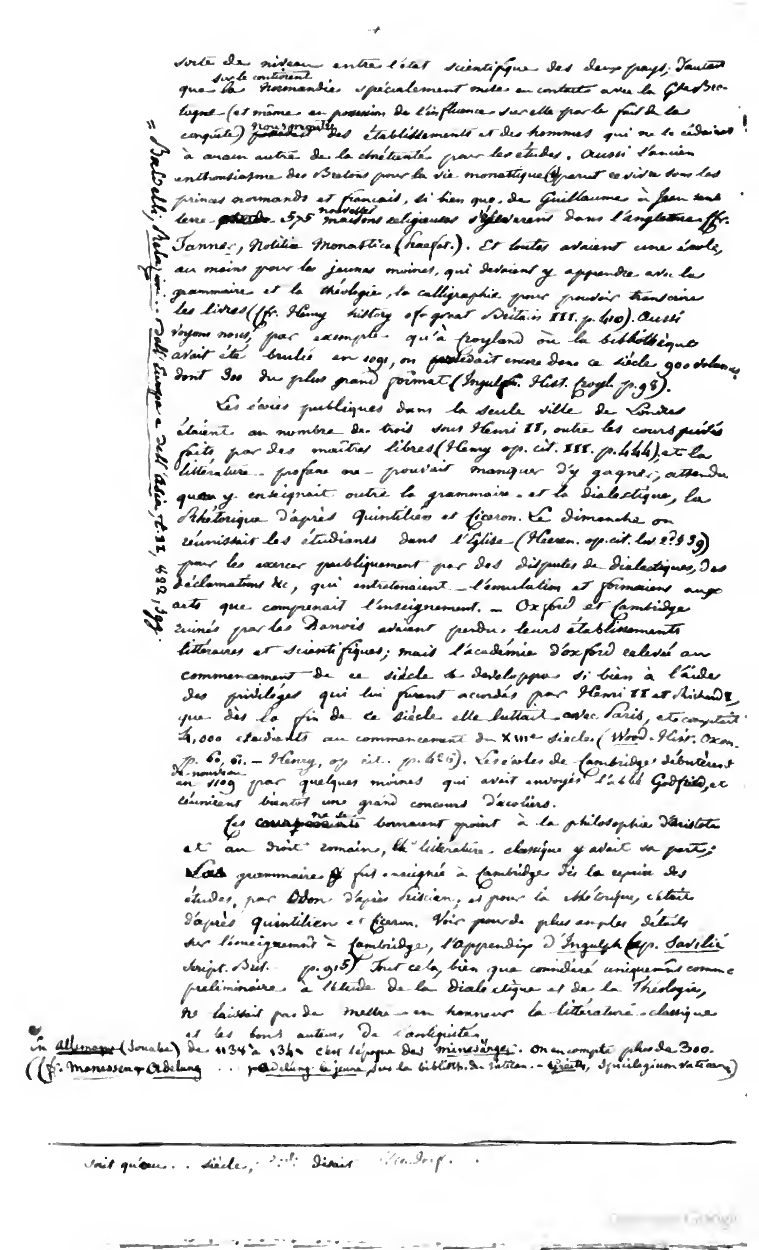 sorte de niveau entre l'état scientifique des deux pays; d'autant
sur le continent
que la Normandie spécialement mise en contact avec la Gde Bre-
tagne (et même en possession de l'influence sur elle par le fait de la
conquête) nous montre des établissements et des hommes qui ne le cédaient
à aucun autre de la chrétienté pour les études. Aussi l'ancien
enthousiasme des Bretons pour la vie monastique parut revivre sous les
princes normands et français, si bien que, de Guillaume à Jean sans
terre 575 nouvelles maisons religieuses s'élevèrent dans l'angleterre (Cfr.
Tanner, Notitia Monastica (Praefat.). Et toutes avaient une école,
au moins pour les jeunes moines, qui devaient y apprendre avec la
grammaire et la théologie, la calligraphie pour pouvoir transcrire
les livres (Cfr. Henry history of great Britain III. p. 410). Aussi
voyons nous, par exemple qu'à Croyland où la bibliothèque
avait été brulée en 1091, on possédait encore dans ce siècle 900 volumes
dont 300 du plus grand format (Ingulph. Hist. Croyl. p. 98).
Les écoles publiques dans la seule ville de Londres
étaient au nombre de trois sous Henri II, outre les cours privés
faits par des maîtres libres (Henry op. cit. III. p. 444), et la
littérature profane ne pouvait manquer d'y gagner, attendu
qu'on y enseignait outre la grammaire et la dialectique, la
Rhétorique d'après Quintilien et Ciceron. Le dimanche on
réunissait les étudiants dans l'Eglise
pour les exercer publiquement par des disputes de dialectiques, des
déclamations &c, qui entretenaient l'émulation et formaient aux
arts que comprenait l'enseignement. — Oxford et Cambridge
ruinés par les Danois avaient perdu leurs établissements
littéraires et scientifiques; mais l'académie d'oxford relevée au
commencement de ce siècle se developpa si bien à l'aide
des privilèges qui lui furent acordés par Henri II et Richard I,
que dès la fin de ce siècle elle luttait avec Paris, et comptait
4,000 etudiants au commencement du XIIIe siècle (Wood. Hist. Oxon.
p. 60, 61. — Henry, op cit. p. 426). Les écoles de Cambridge débutèrent
de nouveau
en 1109 par quelques moines qui avait envoyés l'abbé Godfried, et
réunirent bientot une grand concours d'écoliers.
Ces cours ne se bornaient point à la philosophie d'Aristote
et au droit romain, la littérature classique y avait sa part;
La grammaire fut enseignée à Cambridge dès la reprise des
études, par Odon d'après Priscien, et pour la rhétorique, c'était
d'après Quintilien et Ciceron. Voir pour de plus amples détails
sur l'enseignement à Cambridge, l'appendix d'Ingulph (ap. Savilii
Script. Brit. p. 915) Tout cela, bien que considéré uniquement comme
preliminaire à l'étude de la dialectique et de la Théologie,
ne laissait pas de mettre en honneur la littérature classique
et les bons auteurs de l'antiquité.
En Allemagne (Souabe) de 1138 à 134 c'est l'époque des minesänger. On en compte plus de 300.
(Cfr. Manessen & Adelung . . . Adelung le jeune, sur la biblioth. du Vatican. — Spicilegium vaticanum)
= Baldelli, Relazioni . . dell' Europa e dell' Asia, t. 32, 422, sqq.
soit qu'au . . . siècle, disait